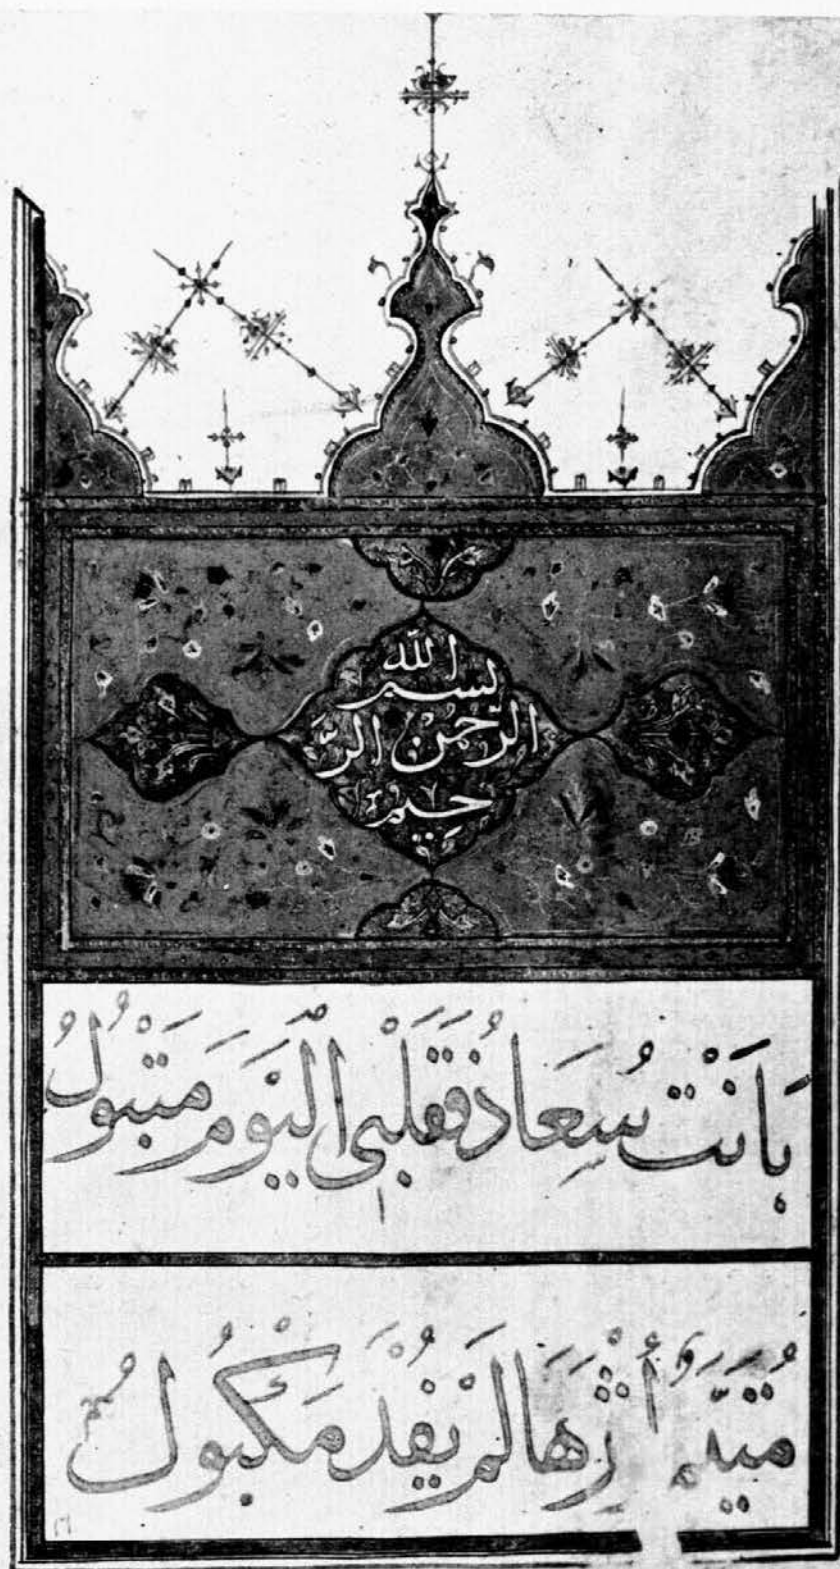 بسم الله
الرحمن الر
حيم
بَانَتْ سُعَادُ فَقَلْبِي الْيَوْمَ مَتْبُولُ
مُتَيَّمٌ أَثْرَهَا لَمْ يُفْدَ مَكْبُولُ